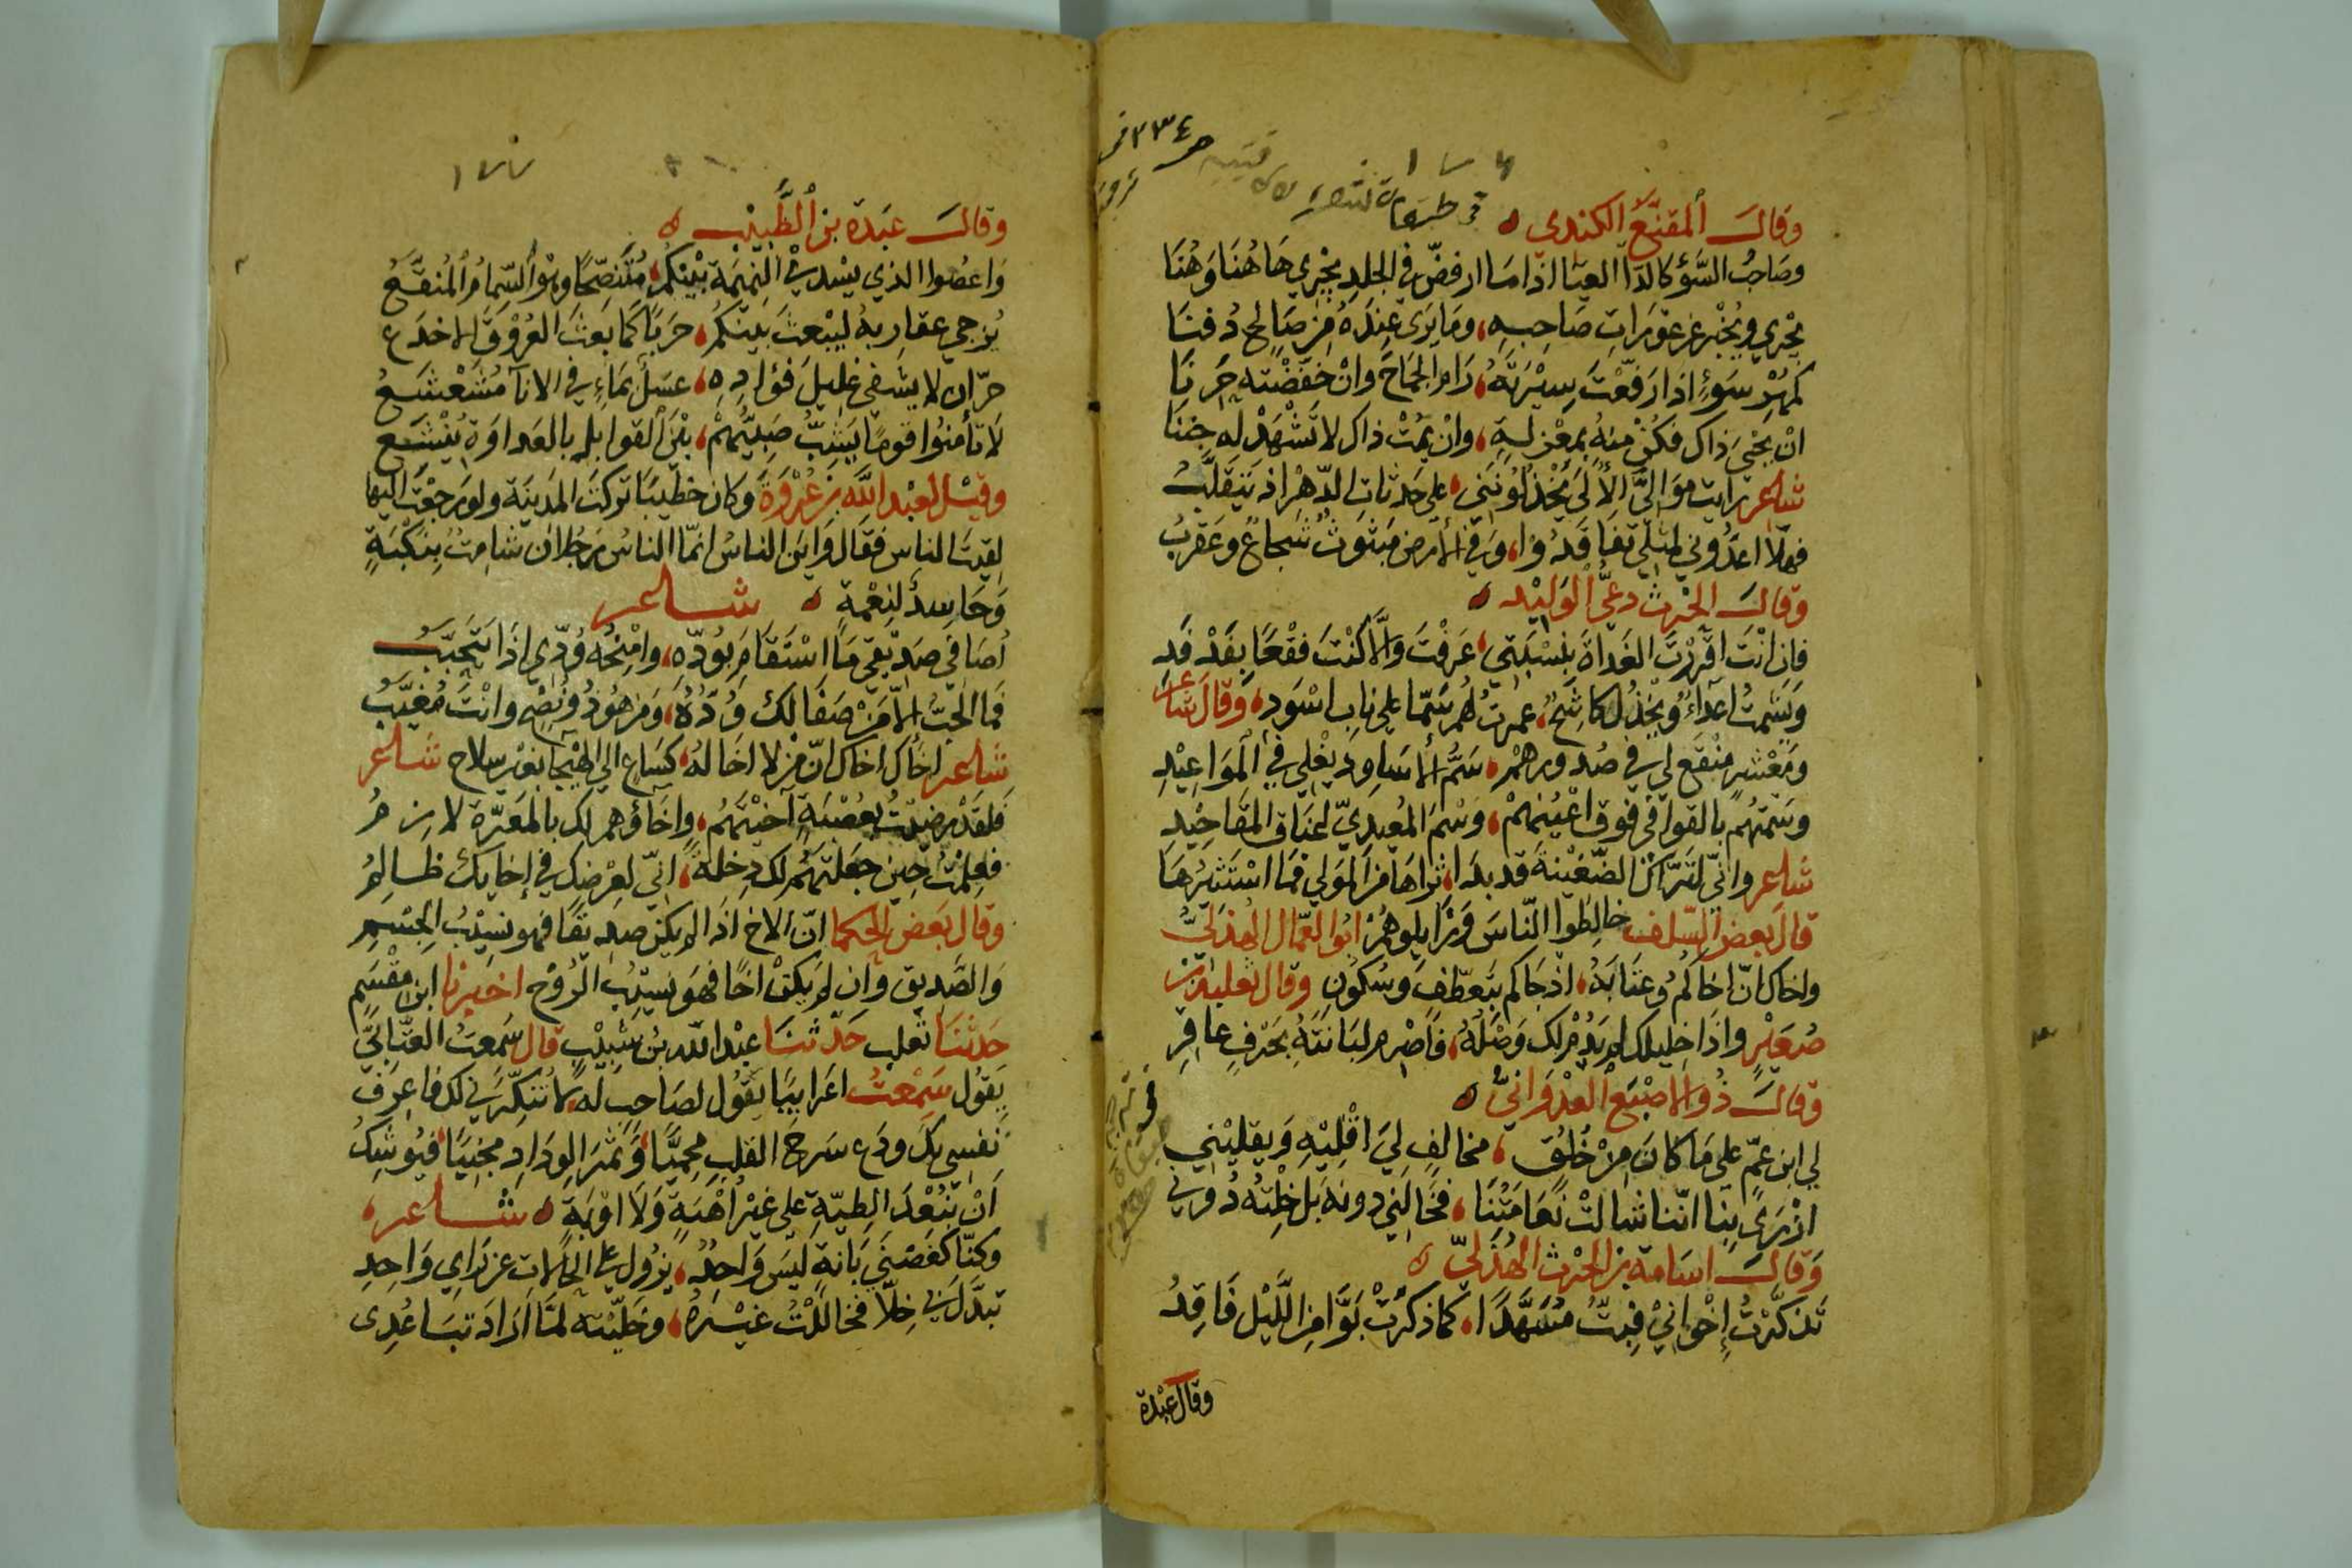 وَقَالَ المُقَنَّعُ الكندي
وصَاحِبُ السَّوْءِ كالدّاءِ العيَا اذا مَا ارفضّ في الجِلدِ يجْرِي هَاهُنَا وَهُنَا
يجْري ويُخْبِرُ عن عَوْرَاتِ صَاحِبِهِ، ومَا يَرَى عِنْدَهُ مِنْ صَالِحٍ دُفنَا
كمُهْرِ سَوْءٍ اذا رَفّعْتَ سِيْرَتَهُ، رَامَ الجمَاحَ وَانْ خَفّضْتَه حَرَنَا
انْ يَحْيَ ذاك فكُنْ مِنهُ بِمَعْزِلَةٍ، وانْ يَمُتْ ذاك لا تَشْهَدْ لَه جَنَنَا
شاعر رايت مَوَاليَّ الأُلَى يَخْذُلُونَنِي، على حَدثانِ الدّهرِ اذ يَتَقَلَّبُ
فهلّا اعَدُّوني لمثلي تفَاقَدُوا، وَفي الأرضِ مَبْثوثٌ شُجاعٌ وعَقْرَبُ
وَقَالَ الحرث دعيُّ الوَلِيْدِ
فَانِ انْتَ اقْرَرْتَ الغَدَاةَ بِنسْبَتِي، عَرَفْتَ وَالَّا كُنْتَ فقْعًا بِفَدْفَدِ
وَيَشمتُ اعدَاءٌ وَيَجْذلُ كاشِحٌ، عمرتُ لهُم سَمّا على نابِ اسْوَدِ، وَقَالَ شاعر
ومَعْشَرٍ مُنْقَعٌ لي في صُدورِهِمُ، سَمُّ الأَسَاوِدِ يَغْلِي في المَوَاعِيْدِ
وسَمتُهُم بالقوافي فوق اعْيُنِهِمْ، وَسْمَ المُعيديّ اعناقَ المقَاحِيْدِ
شاعر وانّي لَتَرّاكُ الضّغيْنَةِ قد بدَا، ثراهَا مِنَ المَوْلَى فمَا اسْتَثِيْرُهَا
قالَ بَعضُ السّلَف خالِطُوا النّاسَ وَزَايلوهُمْ ابُوا العّيال الهُذَليُّ
واخاك انّ اخاكُمُ وعتَابَهُ، اذ جَاكم بتَعطّفٍ وَسُكُونِ وقال ثعلبة بن
صُعَيْرٍ واذَا خليلك لم يَدُمْ لك وَصْلُهُ، فَاصْرِم لبَانَتَهُ بحَرْفٍ عاقِرِ
وَقَالَ ذُو الاصْبَعِ العُدْوَانيُّ
لي ابن عمّ على مَا كانَ مِنْ خُلُقٍ، مخالِفٍ ليَ اقْلِيْهِ وَيقليْنِي
ازْرَى بِنَا انّنا شَالتْ نَعَامَتُنَا، فخَالَنِي دونه بَل خِلْتُهُ دُوني
وَقَالَ اسَامة بن الحرث الهُذَليّ
تَذكّرْتُ إخْوَانيْ فبِتّ مُسَهَّدًا، كما ذكرَتْ بَوًّا مِنَ اللّيْلِ فَاقِدُ
وقال عَبْدة
وقالَ عَبَدة بن الطَّبِيْب
وَاعصُوا الذي يسْدي النميمَة بيْنكُمُ، مُتَنصِّحًا وهْوَ السّمَامُ المُنقَعُ
يُزجي عقارِبهُ ليبْعثَ بَينكُمُ، حَرَبًا كَما بَعَثَ العُرُوقَ الاخدَع
حرّان لا يشفي غليلَ فؤادِهِ، عسَلٌ بمَاءٍ في الانآ مُشَعْشَعُ
لَا تأمنُوا قومًا يَشِبّ صَبِيُّهُمْ، بيْنَ القوابل بالعَداوَة يُنْشَعُ
وقيْل لعبْد اللَّه بن عُرْوَةَ وكان خَطِيْبًا تركتَ المدينَة ولو رَجَعْتَ اليها
لقيتَ الناس فقَال وَايَن الناسُ انمّا الناسُ رَجُلان شامِتٌ بِنكْبَةٍ
وَحَاسِدٌ لنِعْمَةٍ شاعر
اُصَافي صَدِيْقي مَا اسْتَقَامَ بوُدّهِ، وامْنَحُه وُدِّي اذَا يَتَجَنّبُ
فمَا الحبُّ الاّ مَنْ صَفَا لك وُدّهُ، وَمن هُوَ ذو نُصْحٍ وانْتَ مُغَيَّبُ
شاعر اخَاك اخَاك انّ مَن لا اخَا لَهُ، كسَاعٍ الى الهيْجَا بغَيْر سِلاح شاعر
فلقَدْ رضيْتُ بعُصْبَةٍ آخيْتَهُمْ، وإخَاؤهم لك بالمَعَرّة لازِمُ
فعلمْتُ حين جَعَلتَهُمْ لك دِخلةً، انّي لعِرْضِك في إخايك ظالِمُ
وقال بَعضُ الحكما انّ الاخ اذا لم يكن صديقًا فهو نسيْبُ الجسْمِ
وَالصَّديق وان لم يكن اخًا فهوَ نسيْبُ الرُوْح اخبرنا ابن مِقْسَمٍ
حَدثنا ثعلب حَدثنا عبْد الله بن شبِيْبٍ قال سَمعتُ العتّابيَّ
يَقُول سَمِعْتُ اعرَابيًا يقوُل لصَاحِبٍ له
نَفسِي بَكَ ودَع سَرحَ القلبِ مَحمِيًّا، وَثمَرَ الوِدَادِ مجْنيًا، فيُوشِكُ
اَنْ تبْعُدَ الطيّةِ على غيْرِ اُهْبَةٍ وَلَا اوْبَةٍ شاعر،
وكنّا كغصْنَي بَانةٍ ليسَ وَاحِدٌ، يزُول على الحَالات عن رَاي وَاحِدِ
تبدَّل بي خِلّا فخالَلْتُ غيْرهُ، وخلّيْته لمّا ارَادَ تبَاعُدِى